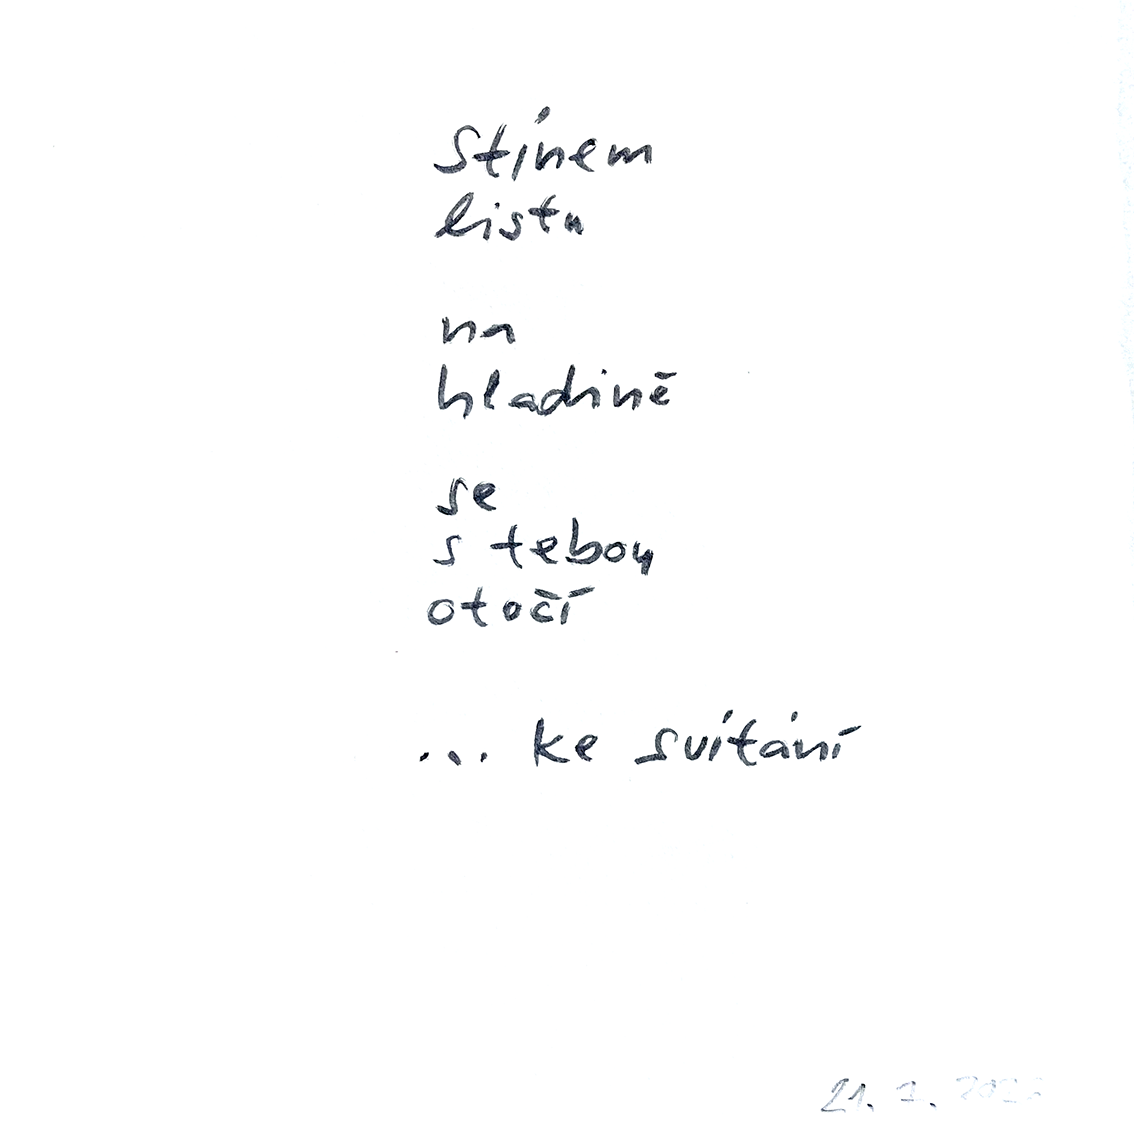 stínem
listu
na
hladině
se
s tebou
otočí
... ke svítání
21.